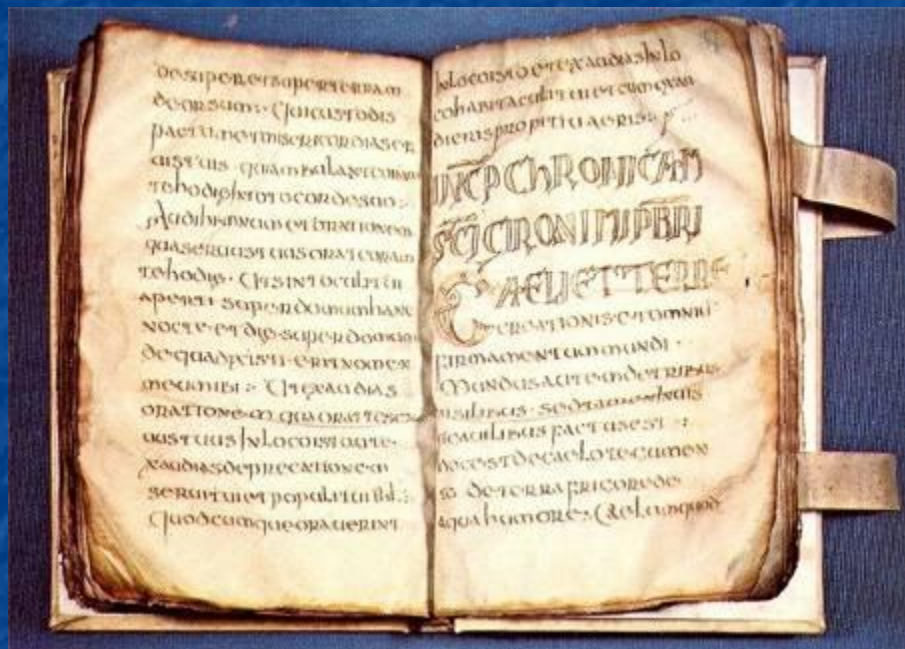 desuper et super terram
deorsum · Qui custodis
pactum et misericordias ser
uis tuis · qui ambulant coram
te hodie in toto corde suo :
Audi hymnum et orationem
qua seruus tuus orat coram
te hodie · Ut sint oculi tui
aperti super domum hanc
nocte · et die · super domum
de qua dixisti · erit nomen
meum ibi : Ut exaudias
oratione m qua orat te ser
uus tuus In loco isto ut e
xaudias deprecatione m
serui tui et populi tui
Quodcumque orauerint
In loco isto et exaudias In lo
co habitaculi tui et cum exau
dieris propitiuaeris :
INCP CHRONICAM
SCI GIRONIMI PBRI
CAELI ET TERRE
creationis et omniu
firmamentum mundi ·
Mundus autem de tribus
uisibilibus · sed tamen
factus est :
hoc est de caelo
de terra fricore de
aqua humore : Caelum quod